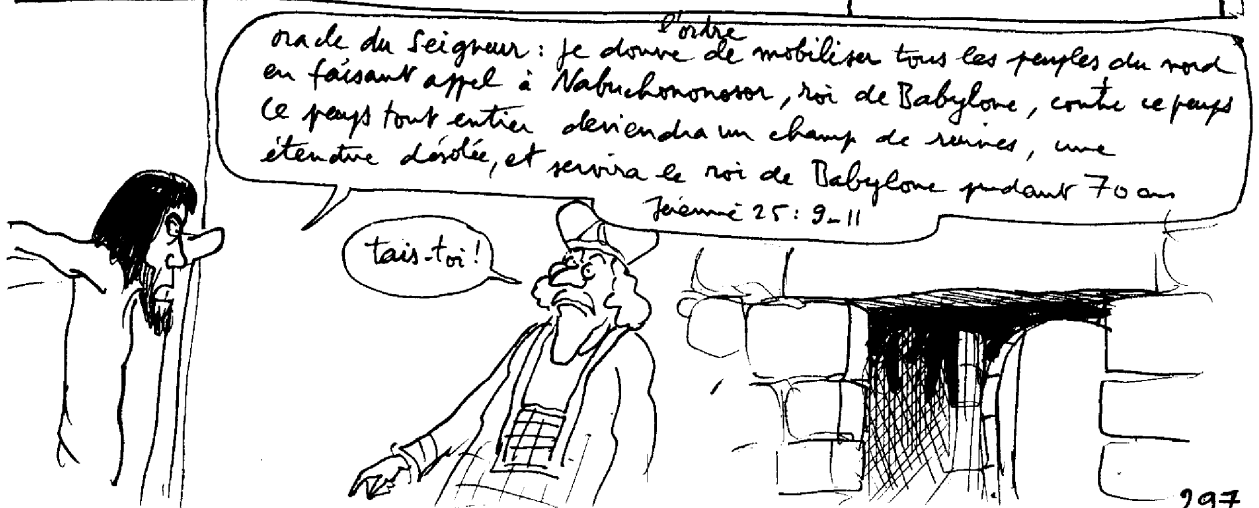 l'ordre
oracle du Seigneur : je donne de mobiliser tous les peuples du nord
en faisant appel à Nabuchononosor, roi de Babylone, contre ce pays
Ce pays tout entier deviendra un champ de ruines, une
étendue désolée, et servira le roi de Babylone pendant 70 ans
Jérémie 25 : 9-11
tais-toi !
297